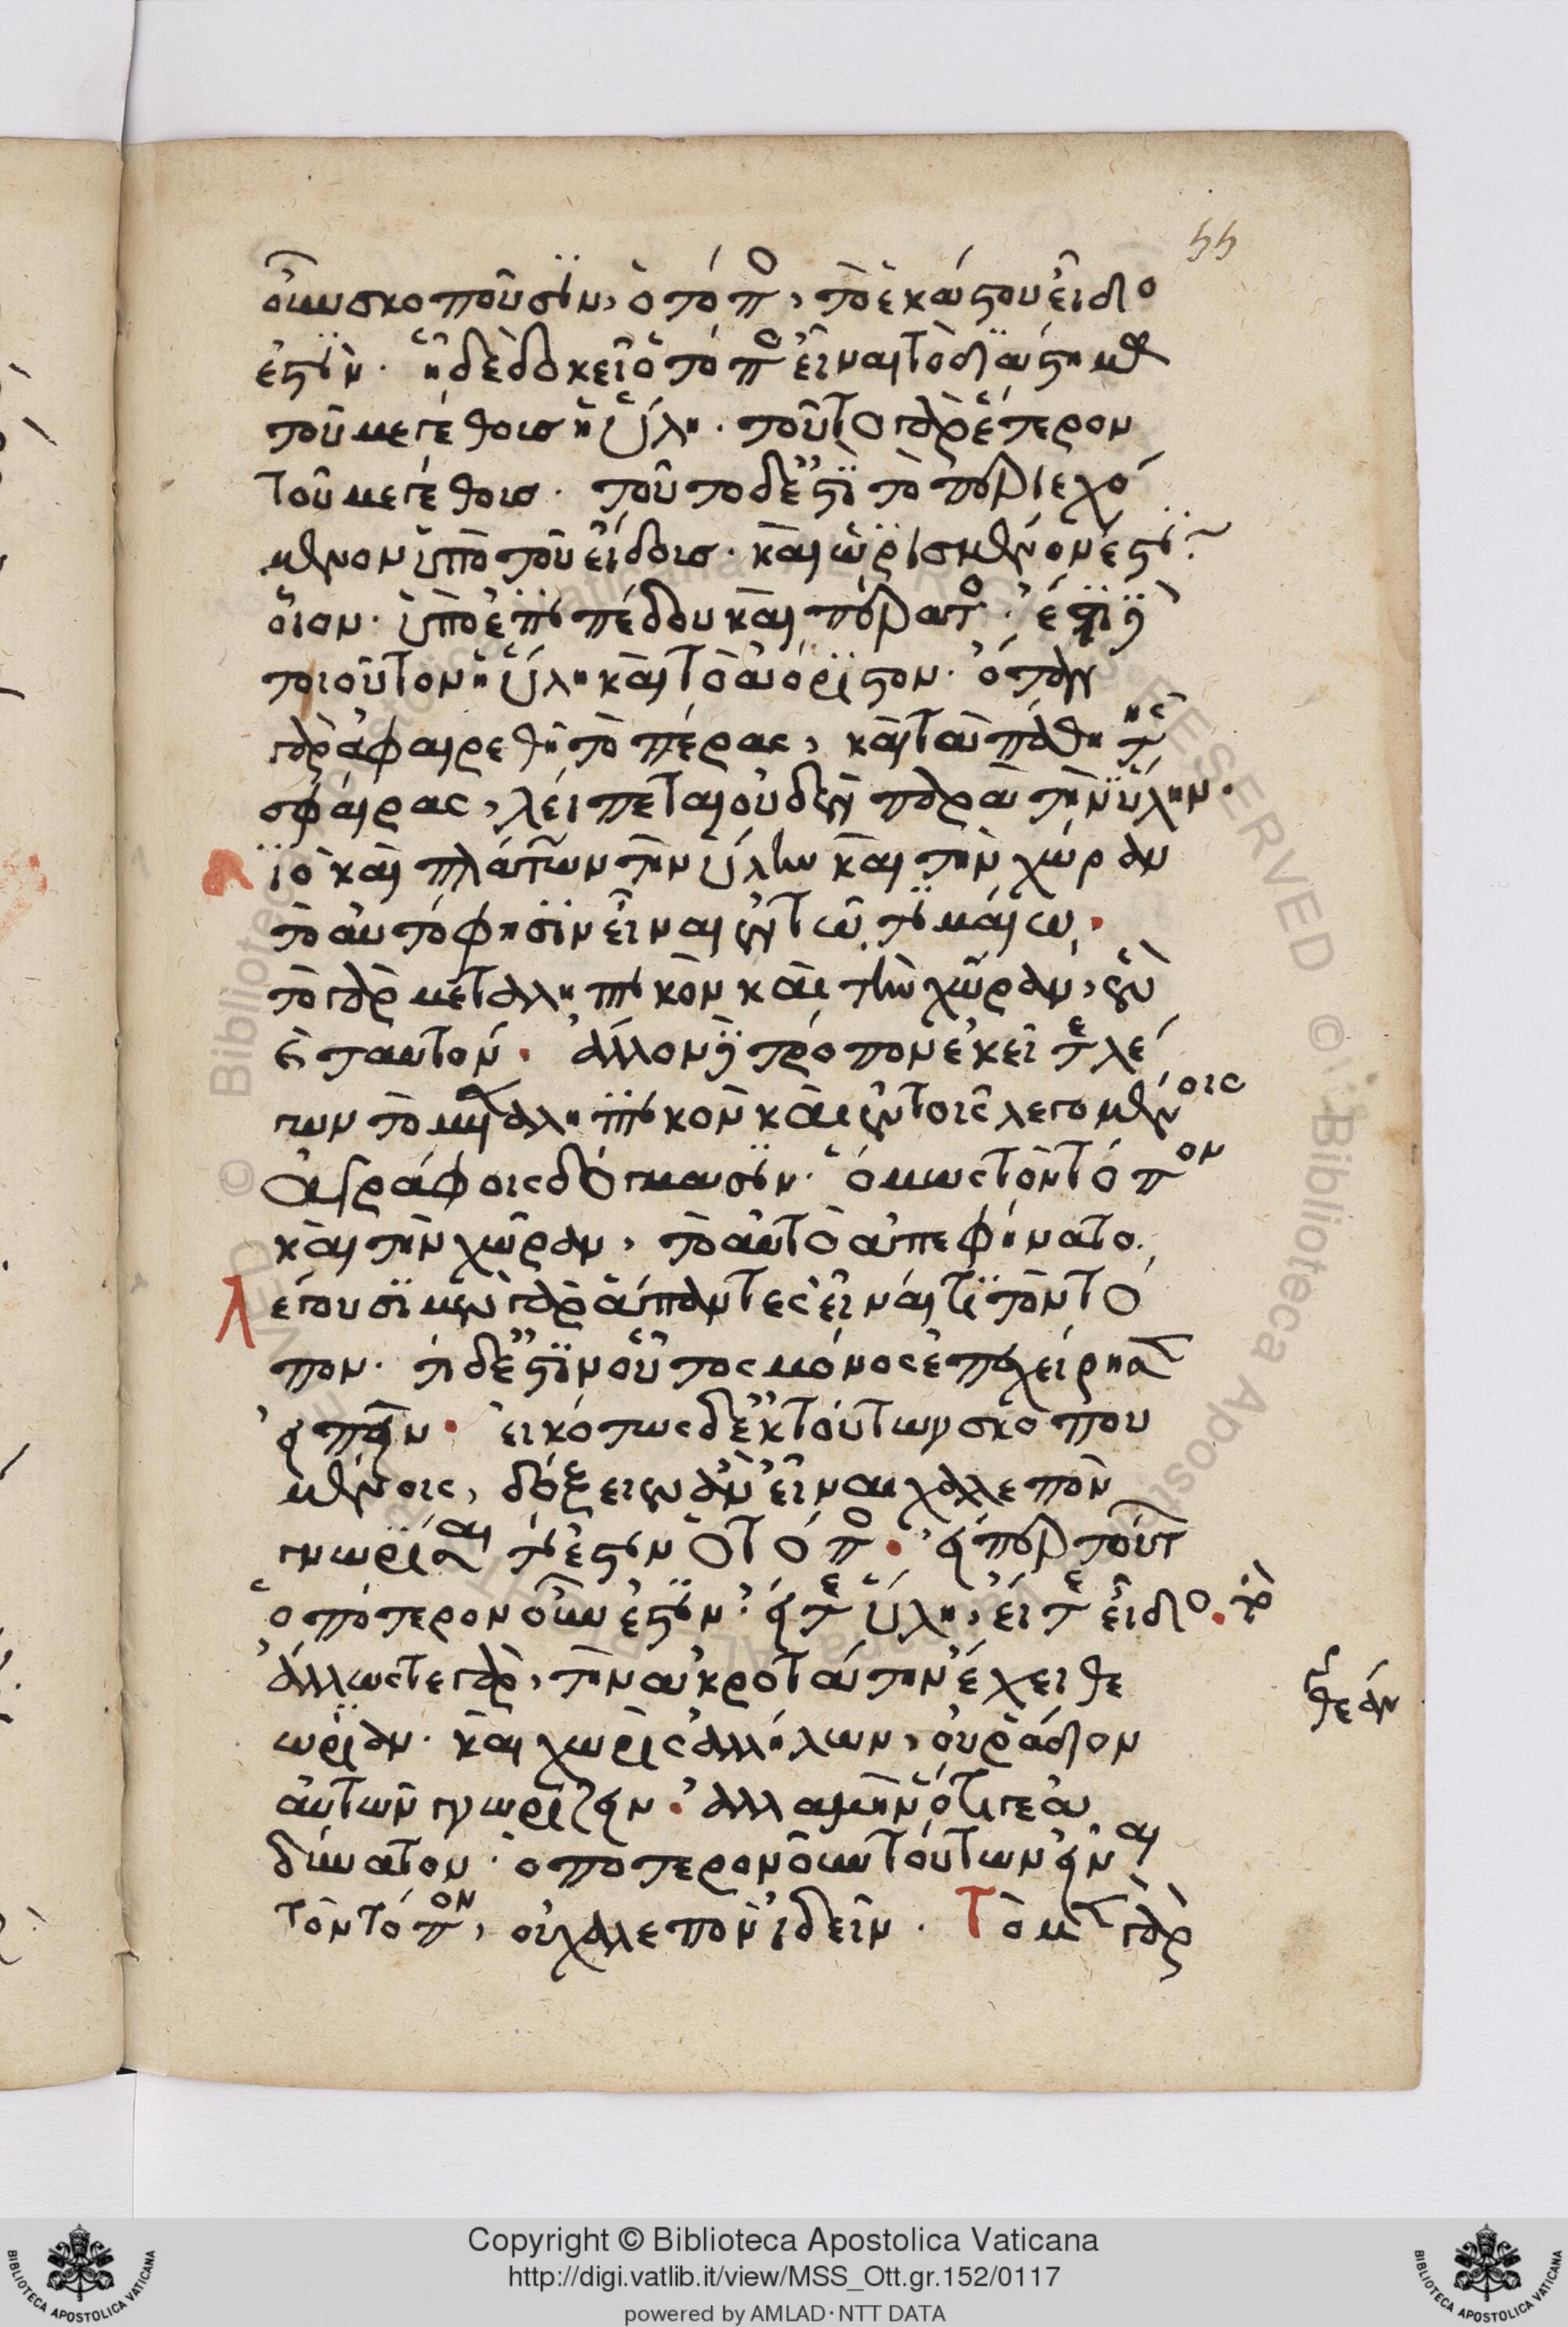 55
οὖν σκοποῦσιν, ὁ τόπος, τὸ ἑκάστου εἶδο
ἐστὶν· ᾗ δὲ δοκεῖ ὁ τόπος εἶναι τὸ διάστημα
τοῦ μεγέθους ἡ ὕλη· τοῦτο γὰρ ἕτερον
τοῦ μεγέθους· τοῦτο δέ ἐστι τὸ περιεχό
μενον ὑπὸ τοῦ εἴδους· καὶ ὡρισμένον ἐστὶν
οἷον· ὑπὸ ἐπιπέδου καὶ πέρατος· ἔστι δὲ
τοιοῦτον ἡ ὕλη καὶ τὸ ἀόριστον· ὅταν
γὰρ ἀφαιρεθῇ τὸ πέρας, καὶ τὰ πάθη τῆς
σφαίρας, λείπεται οὐδὲν παρὰ τὴν ὕλην·
ιὸ καὶ πλάτων τὴν ὕλην καὶ τὴν χώραν
τὸ αὐτό φησιν εἶναι ἐν τῷ τιμαίῳ·
τὸ γὰρ μεταληπτικὸν καὶ τὴν χῶραν, ἓν
καὶ ταυτόν· ἄλλον δὲ τρόπον ἐκεῖ τε λέ
γων τὸ μεταληπτικὸν καὶ ἐν τοῖς λεγομένοις
ἀγράφοις δόγμασιν· ὅμως τὸν τόπον
καὶ τὴν χῶραν, τὸ αὐτὸ ἀπεφήνατο·
Λέγουσι μὲν γὰρ ἅπαντες εἶναί τι τὸν τό
πον· τί δέ ἐστιν οὗτος μόνος ἐπεχείρησεν
εἰπεῖν· εἰκότως δὲ ἐκ τούτων σκοπου
μένοις, δόξειεν ἂν εἶναι χαλεπὸν
γνωρίσαι τί ἐστιν ὁ τόπος· εἴπερ τούτων
ὁπότερον οὖν ἐστιν· εἴτε ὕλη, εἴτε εἶδος· καὶ
ἄλλως τε γὰρ, τὴν ἀκροτάτην ἔχει θε
ωρίαν· καὶ χωρὶς ἀλλήλων, οὐ ῥάδιον
αὐτῶν γνωρίζειν· ἀλλὰ μὴν ὅτι γε ἀ
δύνατον· ὁποτερονοῦν τούτων εἶναι
τὸν τόπον, οὐ χαλεπὸν ἰδεῖν· Τὸ μὲν γὰρ
Copyright © Biblioteca Apostolica Vaticana
http://digi.vatlib.it/view/MSS_Ott.gr.152/0117
powered by AMLAD·NTT DATA
BIBLIOTECA APOSTOLICA VATICANA
BIBLIOTECA APOSTOLICA VATICANA